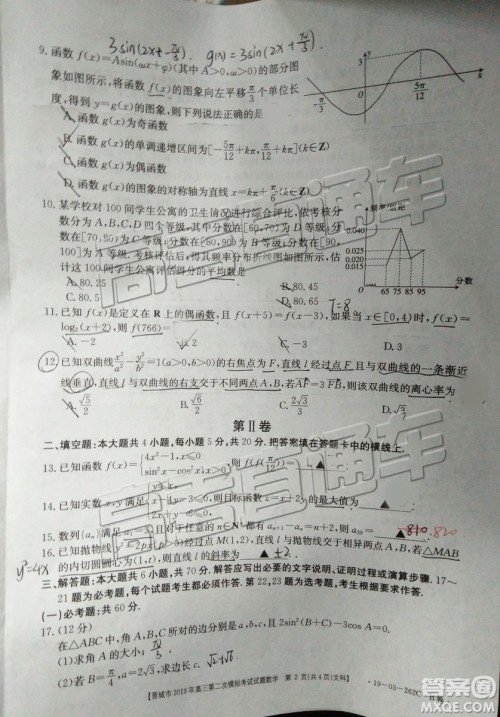 3sin(2x+π/3). g(x)=3sin(2x+π/3).
9. 函数 f(x)=Asin(ωx+φ)(其中 A>0, ω>0)的部分图
象如图所示,将函数 f(x)的图象向左平移π/3个单位长
度,得到 y=g(x)的图象,则下列说法正确的是
A. 函数 g(x)为奇函数
B. 函数 g(x)的单调递增区间为[-5π/12+kπ, π/12+kπ](k∈Z)
C. 函数 g(x)为偶函数
D. 函数 g(x)的图象的对称轴为直线 x=kπ+π/6(k∈Z)
y
3
-π/3
O
5π/12
x
10. 某学校对 100 间学生公寓的卫生情况进行综合评比,依考核分
数分为 A,B,C,D 四个等级,其中分数在[60,70)为 D 等级;分
数在[70,80)为 C 等级;分数在[80,90)为 B 等级;分数在[90,
100)为 A 等级,得其频率分布折线图如图所示,估计
这 100 间学生公寓评分的平均数是
A. 80.25
B. 80.45
C. 80.5
D. 80.65
频率/组距
0.040
0.025
0.020
0.015
O
65 75 85 95
分数
T=8
11. 已知 f(x)是定义在 R 上的偶函数,且 f(x+5)=f(x-3),如果当 x∈[0,4)时,f(x)=
log₂(x+2),则 f(766)=
A. -2
C. 3
D. 2
12. 已知双曲线x²/a²-y²/b²=1(a>0,b>0)的右焦点为 F,直线 l 经过点 F 且与双曲线的一条渐近
线垂直,直线 l 与双曲线的右支交于不同两点 A,B,若AF=3FB,则该双曲线的离心率为
A. √5/2
B. √6/2
C. 2√3/3
D. √3
第Ⅱ卷
二、填空题:本大题共 4 小题,每小题 5 分,共 20 分.把答案填在答题卡中的横线上.
13. 已知函数 f(x)={4x²-1, x≤0 sin²x-cos²x, x>0, 则 f(f(π/12))= ▲
14. 已知实数 x,y 满足 则目标函数 z=x+2y 的最大值为 ▲
15. 数列{aₙ}满足 a₁=3,且对于任意的 n∈N* 都有 aₙ₊₁-aₙ=n+2,则 a₃₉= 820
16. 已知抛物线 y²=2px(p>0)经过点 直线 l 与抛物线交于相异两点 A,B,若△MAB
的内切圆圆心为(1,t),则直线 l 的斜率为 ▲ ±2.
y²=4x
三、解答题:本大题共 6 小题,共 70 分.解答应写出必要的文字说明,证明过程或演算步骤.17~
21 题为必考题,每个试题考生都必须作答.第 22,23 题为选考题,考生根据要求作答.
(一)必考题:共 60 分.
17. (12 分)
在△ABC 中,角 A,B,C 的对边分别是 a,b,c,已知
【晋城市 2019 年高三第二次模拟考试试题数学 第 2 页(共 4 页)(文科)】
·19-03-262C·
高考直通车
高考直通车